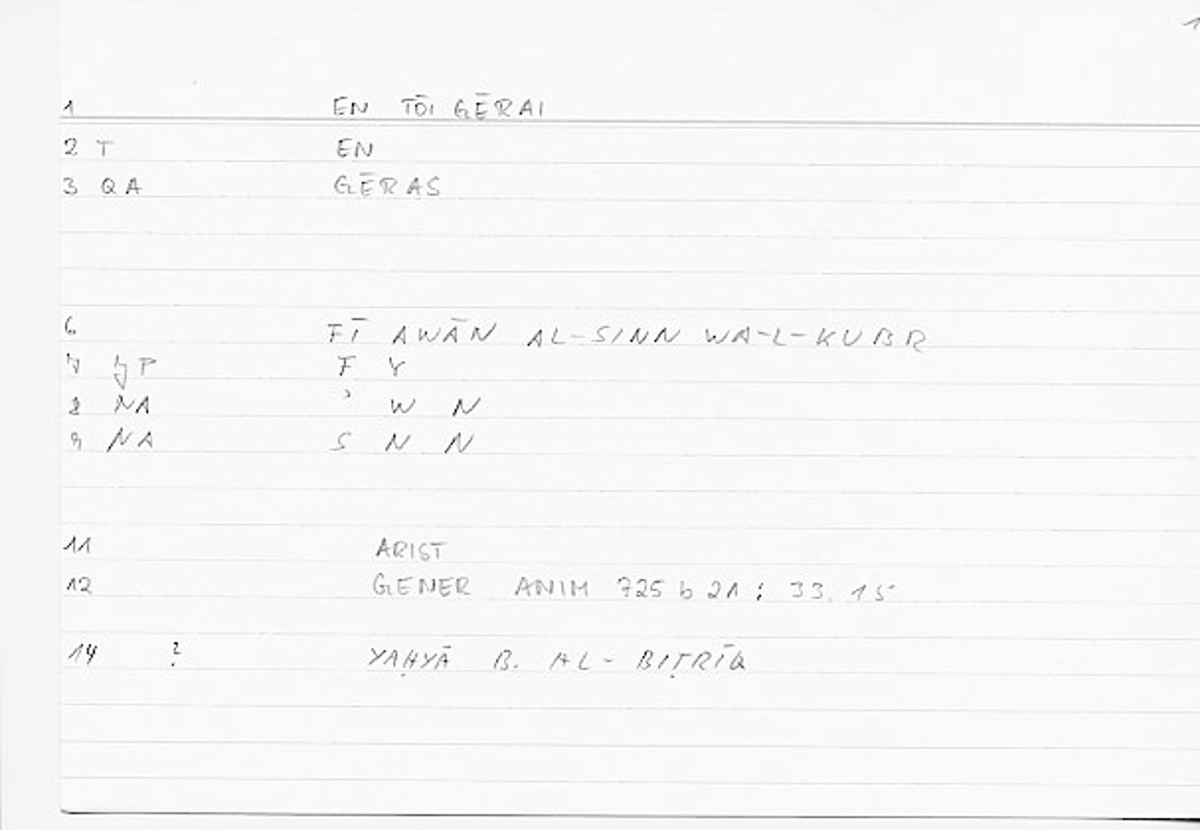 1
1 EN TŌI GĒRAI
2 T EN
3 QA GĒRAS
6 FĪ AWĀN AL-SINN WA-L-KUBR
7 P F Y
8 NA ʾ W N
9 NA S N N
11 ARIST
12 GENER ANIM 725 b 21 : 33. 15
14 ? YAḤYĀ B. AL-BIṬRĪQ